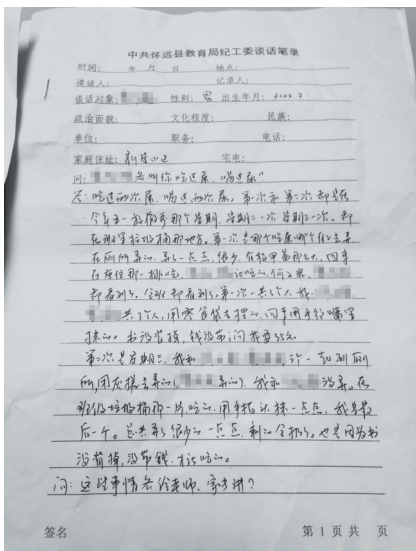 中共怀远县教育局纪工委谈话笔录
时间： 年 月 日 地点：
谈话人： 记录人：
谈话对象： 性别：男 出生年月：2002.2.
政治面貌： 文化程度： 民族：
单位： 职务： 电话：
家庭住址：新隆小区 宅电：
问： 否叫你吃过尿、喝过尿？
答：吃过两次尿、喝过两次尿。第一次和第二次都是在
今年五一放假前那个星期，星期二一次 星期三一次。都
在班里垃圾桶那地方。第一次是
在厕所弄的 弄了一点点，很少，有指甲盖那么大，回来
在座位那一排吃，
都看到了，全班都看到了。第一次共 个人 我、
共 个人，用零食袋去捏的，回来用手往嘴里
抹的。书没背掉，钱没带 问我要35元。
第二次是星期三，我和 一个一起到厕
所，用灰 去弄的（ 弄的）。我和 没弄。在
班级垃圾桶那一片吃的，用手指头抹一点点，我是最
后一个。总共弄了很少的一点点，剩的全扔了。也是因为书
没背掉，没带钱，才让吃的。
问：这些事情是否给老师、家长讲？
签名 第 1 页 共 页